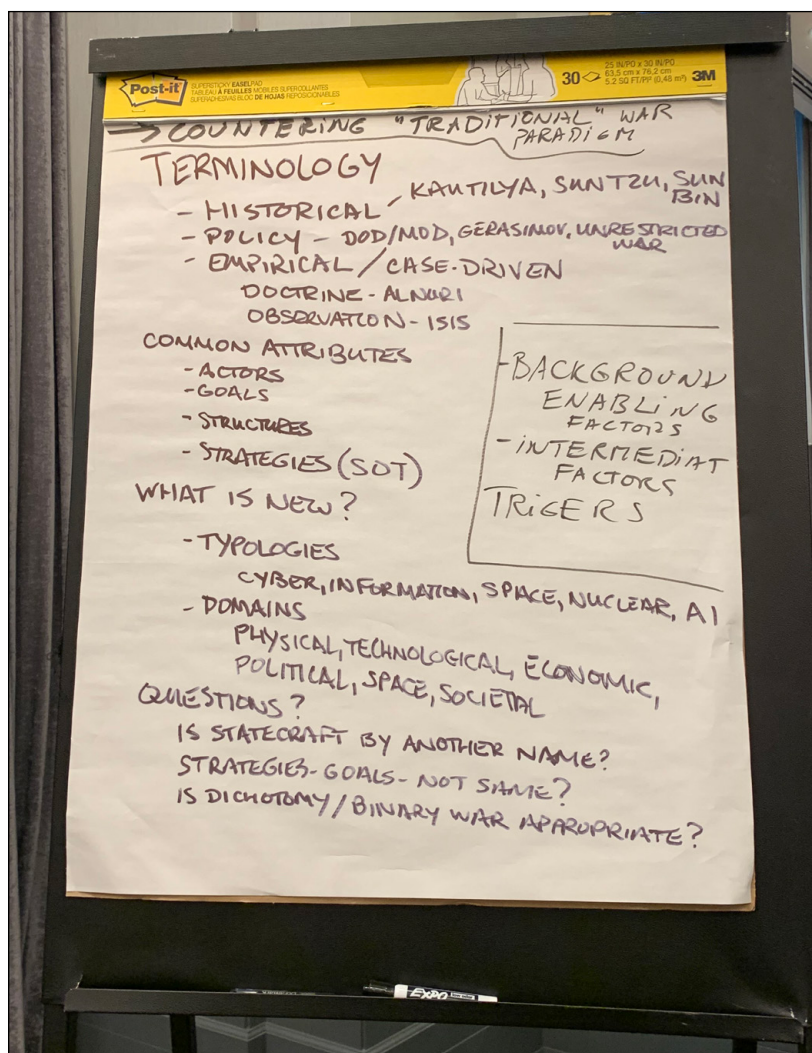 Post-it
SUPERSTICKY EASEL PAD
TABLEAU À FEUILLES MOBILES SUPERCOLLANTES
SUPERADHESIVAS BLOC DE HOJAS REPOSICIONABLES
30
25 IN/PO x 30 IN/PO
63,5 cm x 76,2 cm
5.2 SQ FT/PI² (0,48 m²)
3M
→ COUNTERING "TRADITIONAL" WAR
PARADIGM
TERMINOLOGY
- HISTORICAL - KAUTILYA, SUN TZU, SUN
BIN
- POLICY - DOD/MOD, GERASIMOV, UNRESTRICTED
WAR
- EMPIRICAL / CASE-DRIVEN
DOCTRINE - ALNURI
OBSERVATION - ISIS
COMMON ATTRIBUTES
- ACTORS
- GOALS
- STRUCTURES
- STRATEGIES (SOT)
- BACKGROUND
ENABLING
FACTORS
- INTERMEDIAT
FACTORS
TRIGERS
WHAT IS NEW?
- TYPOLOGIES
CYBER, INFORMATION, SPACE, NUCLEAR, AI
- DOMAINS
PHYSICAL, TECHNOLOGICAL, ECONOMIC,
POLITICAL, SPACE, SOCIETAL
QUESTIONS?
IS STATECRAFT BY ANOTHER NAME?
STRATEGIES - GOALS - NOT SAME?
IS DICHOTOMY / BINARY WAR APAROPRIATE?
EXPO